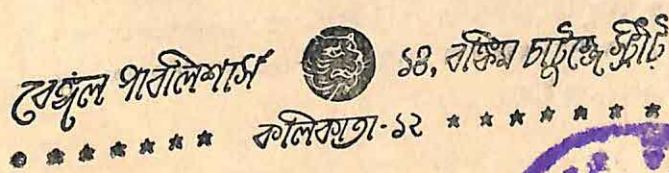 বেঙ্গল পাবলিশার্স ১৪, বঙ্কিম চাটুজ্জে স্ট্রীট
কলিকাতা-১২